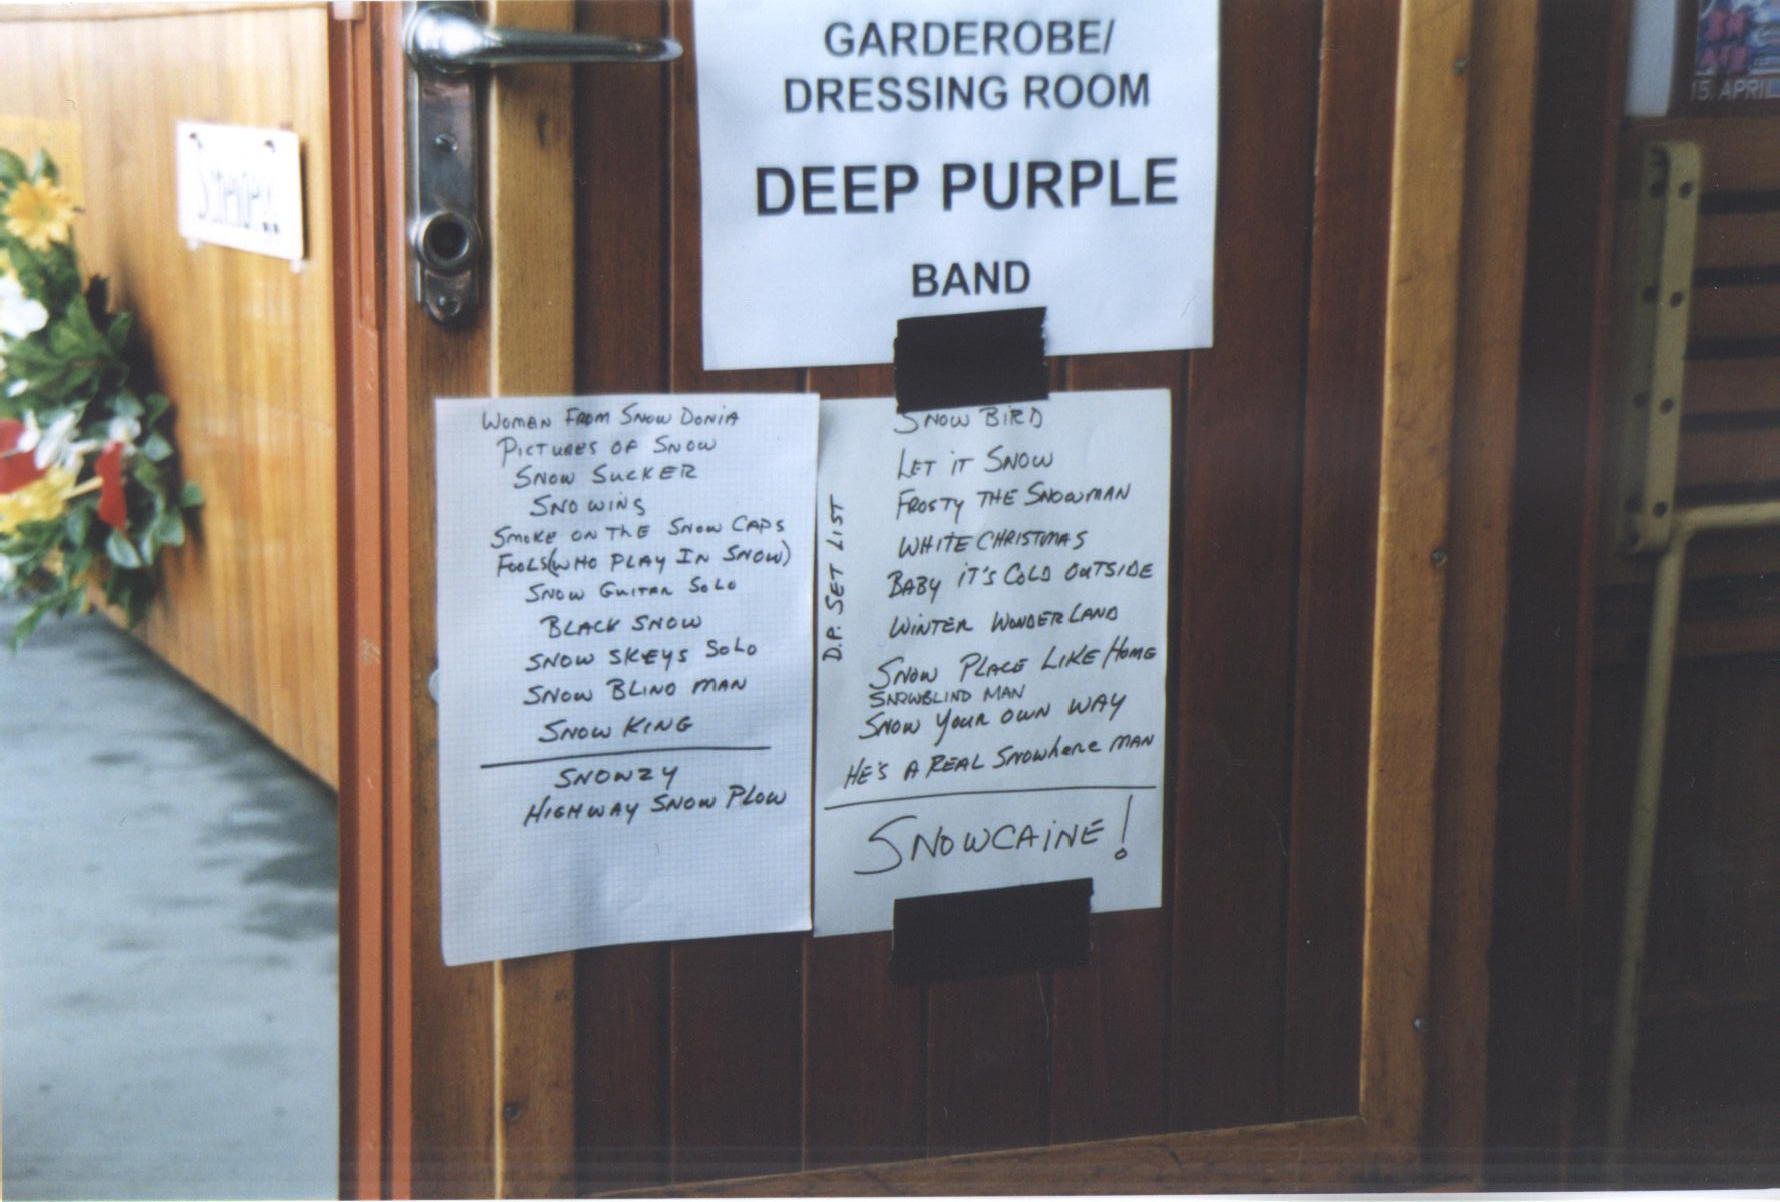 GARDEROBE/
DRESSING ROOM
DEEP PURPLE
BAND
WOMAN FROM SNOW DONIA
PICTURES OF SNOW
SNOW SUCKER
SNO WING
SMOKE ON THE SNOW CAPS
FOOLS (WHO PLAY IN SNOW)
SNOW GUITAR SOLO
BLACK SNOW
SNOW SKEYS SOLO
SNOW BLIND MAN
SNOW KING
SNOWZY
HIGHWAY SNOW PLOW
D.P. SET LIST
SNOW BIRD
LET IT SNOW
FROSTY THE SNOWMAN
WHITE CHRISTMAS
BABY IT'S COLD OUTSIDE
WINTER WONDER LAND
SNOW PLACE LIKE HOME
SNOWBLIND MAN
SNOW YOUR OWN WAY
HE'S A REAL SNOWhere MAN
SNOWCAINE!
15. APRIL